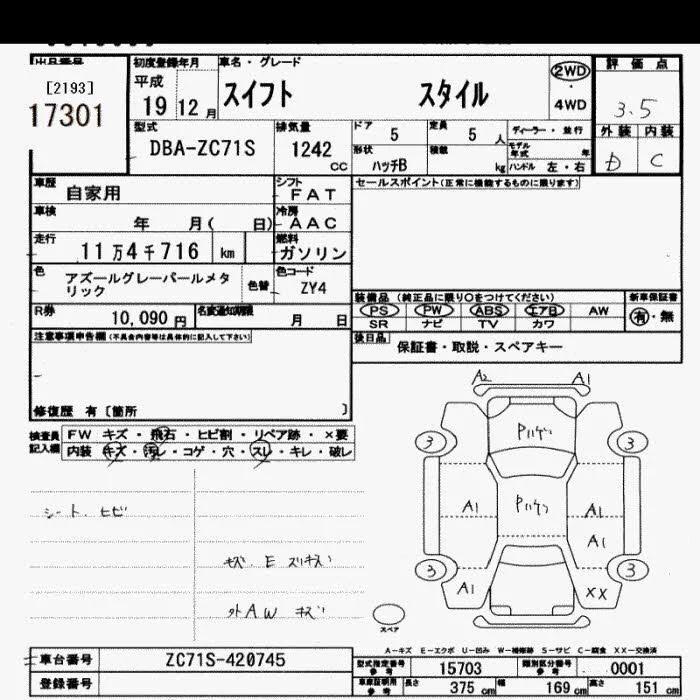 出品番号 初度登録年月 車名・グレード 評価点
[2193] 平成 2WD
17301 19 12月 スイフト スタイル ・ 4WD 3.5
型式 排気量 ドア 定員 ディーラー・並行 外装 内装
DBA-ZC71S 1242 cc 5 5人 モデル年式 年 D C
形状 積載
ハッチB kg ハンドル 左・右
車歴 自家用 シフト FAT セールスポイント(正常に機能するものに限ります)
車検 年 月( 日) 冷房 AAC
走行 11万4千716 km 燃料 ガソリン
色 アズールグレーパールメタリック 色替 色コード ZY4
装備品 (純正品に限り〇をつけてください) 新車保証書
PS PW ABS エアB AW 有・無
SR ナビ TV カワ
R券 10,090円 名変通知期限 月 日
後日品 保証書・取説・スペアキー
注意事項申告欄(不具合内容等は具体的に記入して下さい)
修復歴 有〔箇所 〕
検査員記入欄 FW キズ・飛石・ヒビ割・リペア跡・×要
内装 キズ・汚レ・コゲ・穴・スレ・キレ・破レ
A2 A1
Pハゲ
3 3
シート、ヒビ
A1 Pハゲ A1
A1
キズ、E スリキズ
3 3
A1 XX
外AW キズ
スペア
A-キズ E-エクボ U-凹み W-補修跡 S-サビ C-腐食 XX-交換済
車台番号 ZC71S-420745
型式指定番号 参考 15703 類別区分番号 参考 0001
登録番号
車庫証明用 参考 長さ 375 cm 幅 169 cm 高さ 151 cm